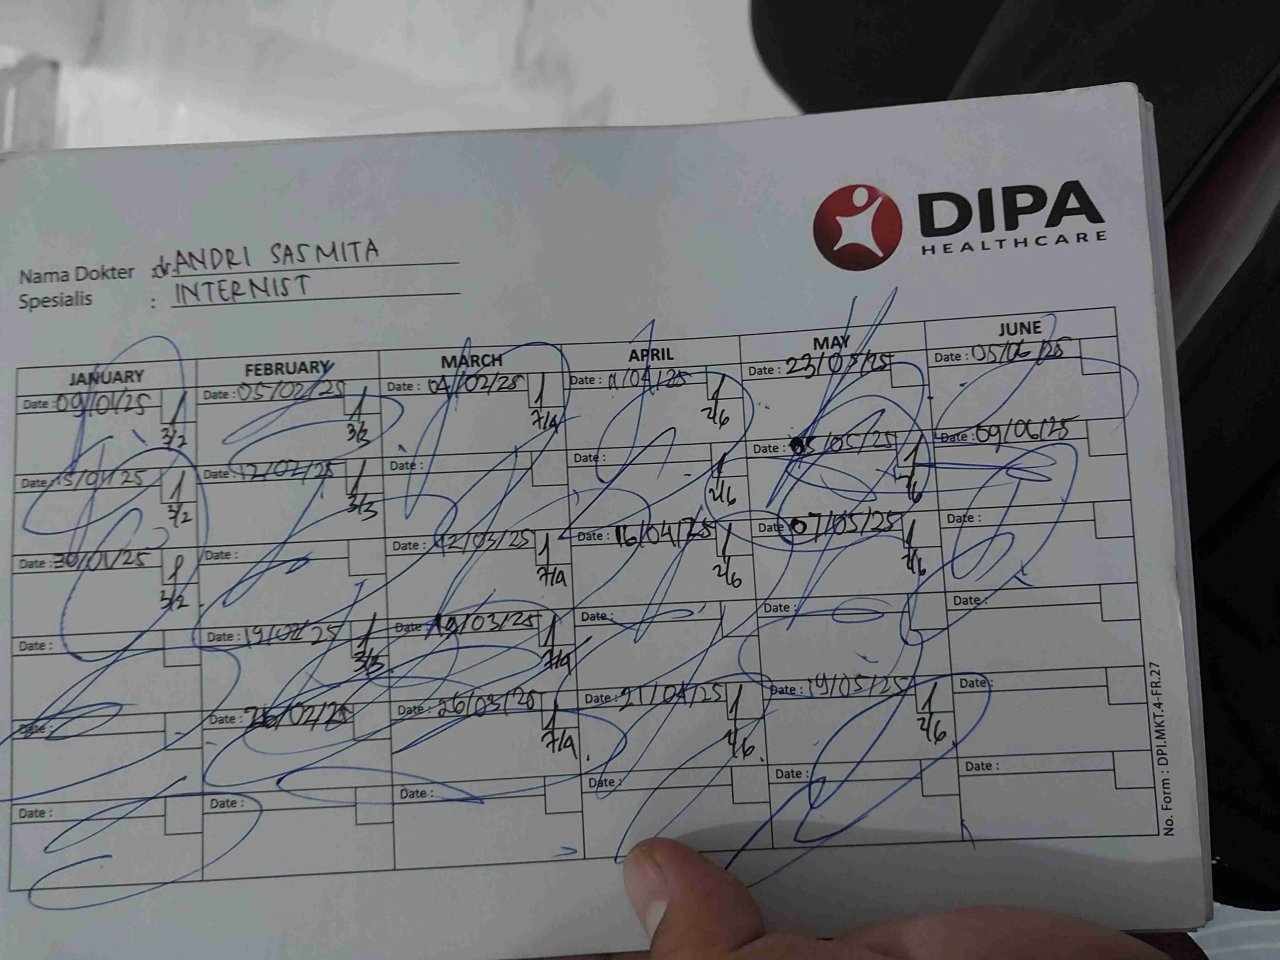 DIPA
HEALTHCARE
Nama Dokter : dr. ANDRI SASMITA
Spesialis : INTERNIST
JANUARY FEBRUARY MARCH APRIL MAY JUNE
Date : 09/01/25 Date : 05/02/25 Date : 04/02/25 Date : 11/04/25 23/05/25 Date : 05/06/25
3/2 3/3 7/4 2/6
Date : 15/01/25 Date : 12/02/25 Date : Date : Date : 05/05/25 Date : 09/06/25
3/2 3/3 2/6 2/6
Date : 30/01/25 Date : Date : 12/03/25 Date : 16/04/25 Date : 07/05/25 Date :
3/2 7/4 2/6 2/6
Date : Date : 19/02/25 Date : 19/03/25 Date : Date : Date :
3/3 7/4
Date : Date : 26/02/25 Date : 26/03/25 Date : 21/04/25 Date : 19/05/25 Date :
7/4 2/6 2/6
Date : Date : Date : Date : Date : Date :
No. Form : DPI.MKT.4-FR.27